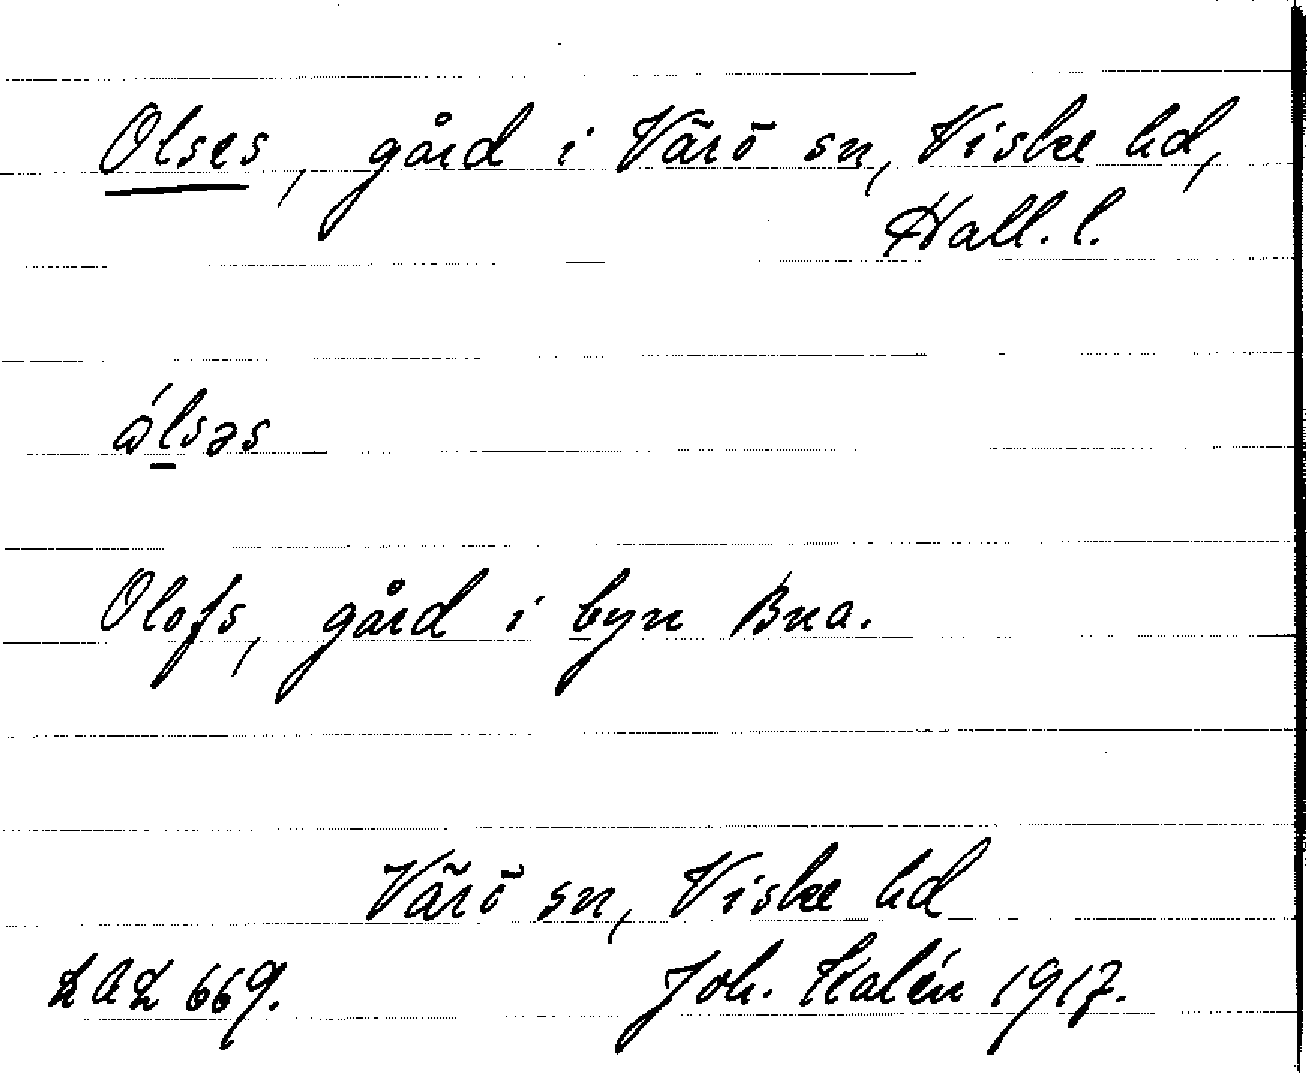 Olses, gård i Värö sn, Viske hd,
Hall. l.
ώlsəs
Olofs, gård i byn Bua.
Värö sn, Viske hd
LAL 669. Joh. Kalén 1917.